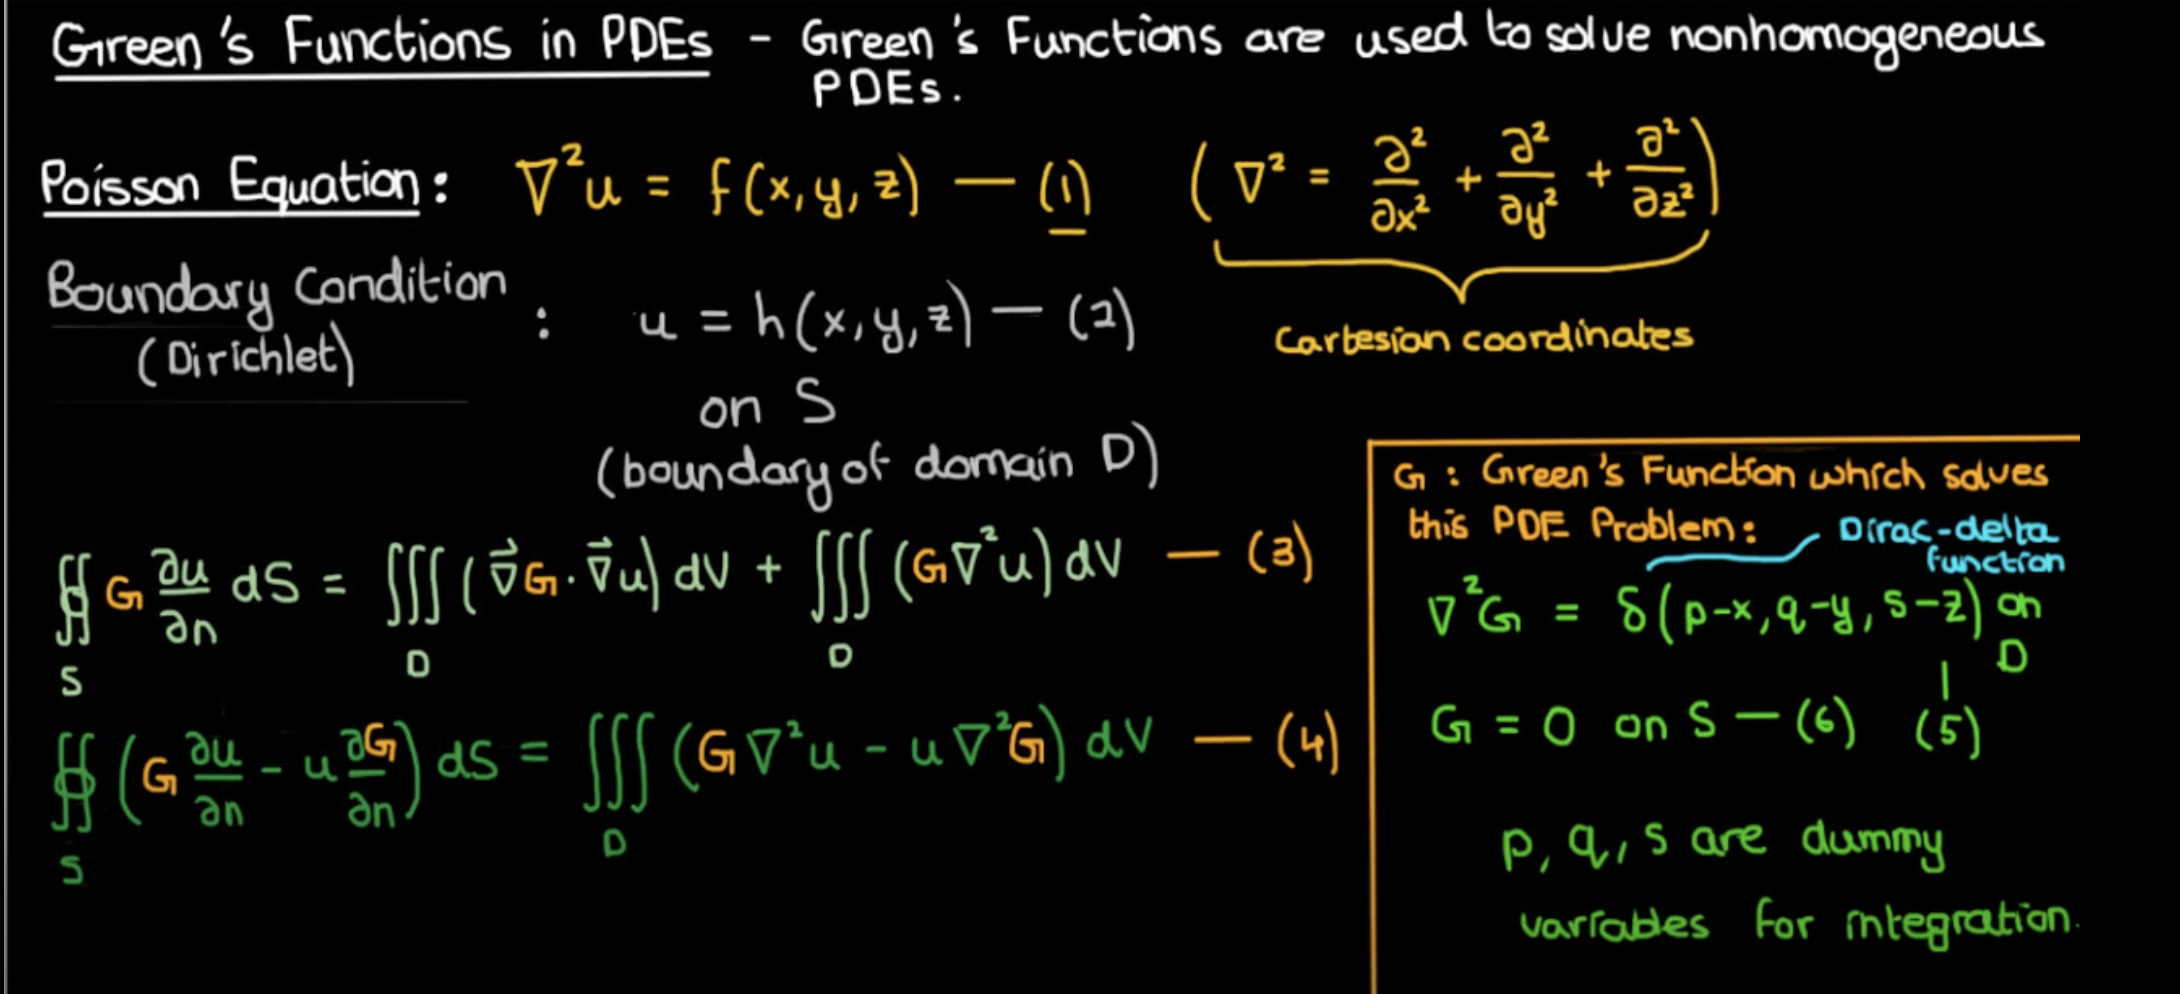 Green's Functions in PDEs - Green's Functions are used to solve nonhomogeneous
PDEs.
Poisson Equation: ∇²u = f(x,y,z) — (1) (∇² = ∂²/∂x² + ∂²/∂y² + ∂²/∂z²)
Cartesian coordinates
Boundary Condition
(Dirichlet)
: u = h(x,y,z) — (2)
on S
(boundary of domain D)
∯_S G ∂u/∂n dS = ∭_D (∇⃗G · ∇⃗u) dV + ∭_D (G∇²u) dV — (3)
∯_S (G ∂u/∂n - u ∂G/∂n) dS = ∭_D (G∇²u - u∇²G) dV — (4)
G : Green's Function which solves
this PDE Problem:
Dirac-delta
function
∇²G = δ(p-x, q-y, s-z) on
D
(5)
G = 0 on S — (6)
p, q, s are dummy
variables for integration.